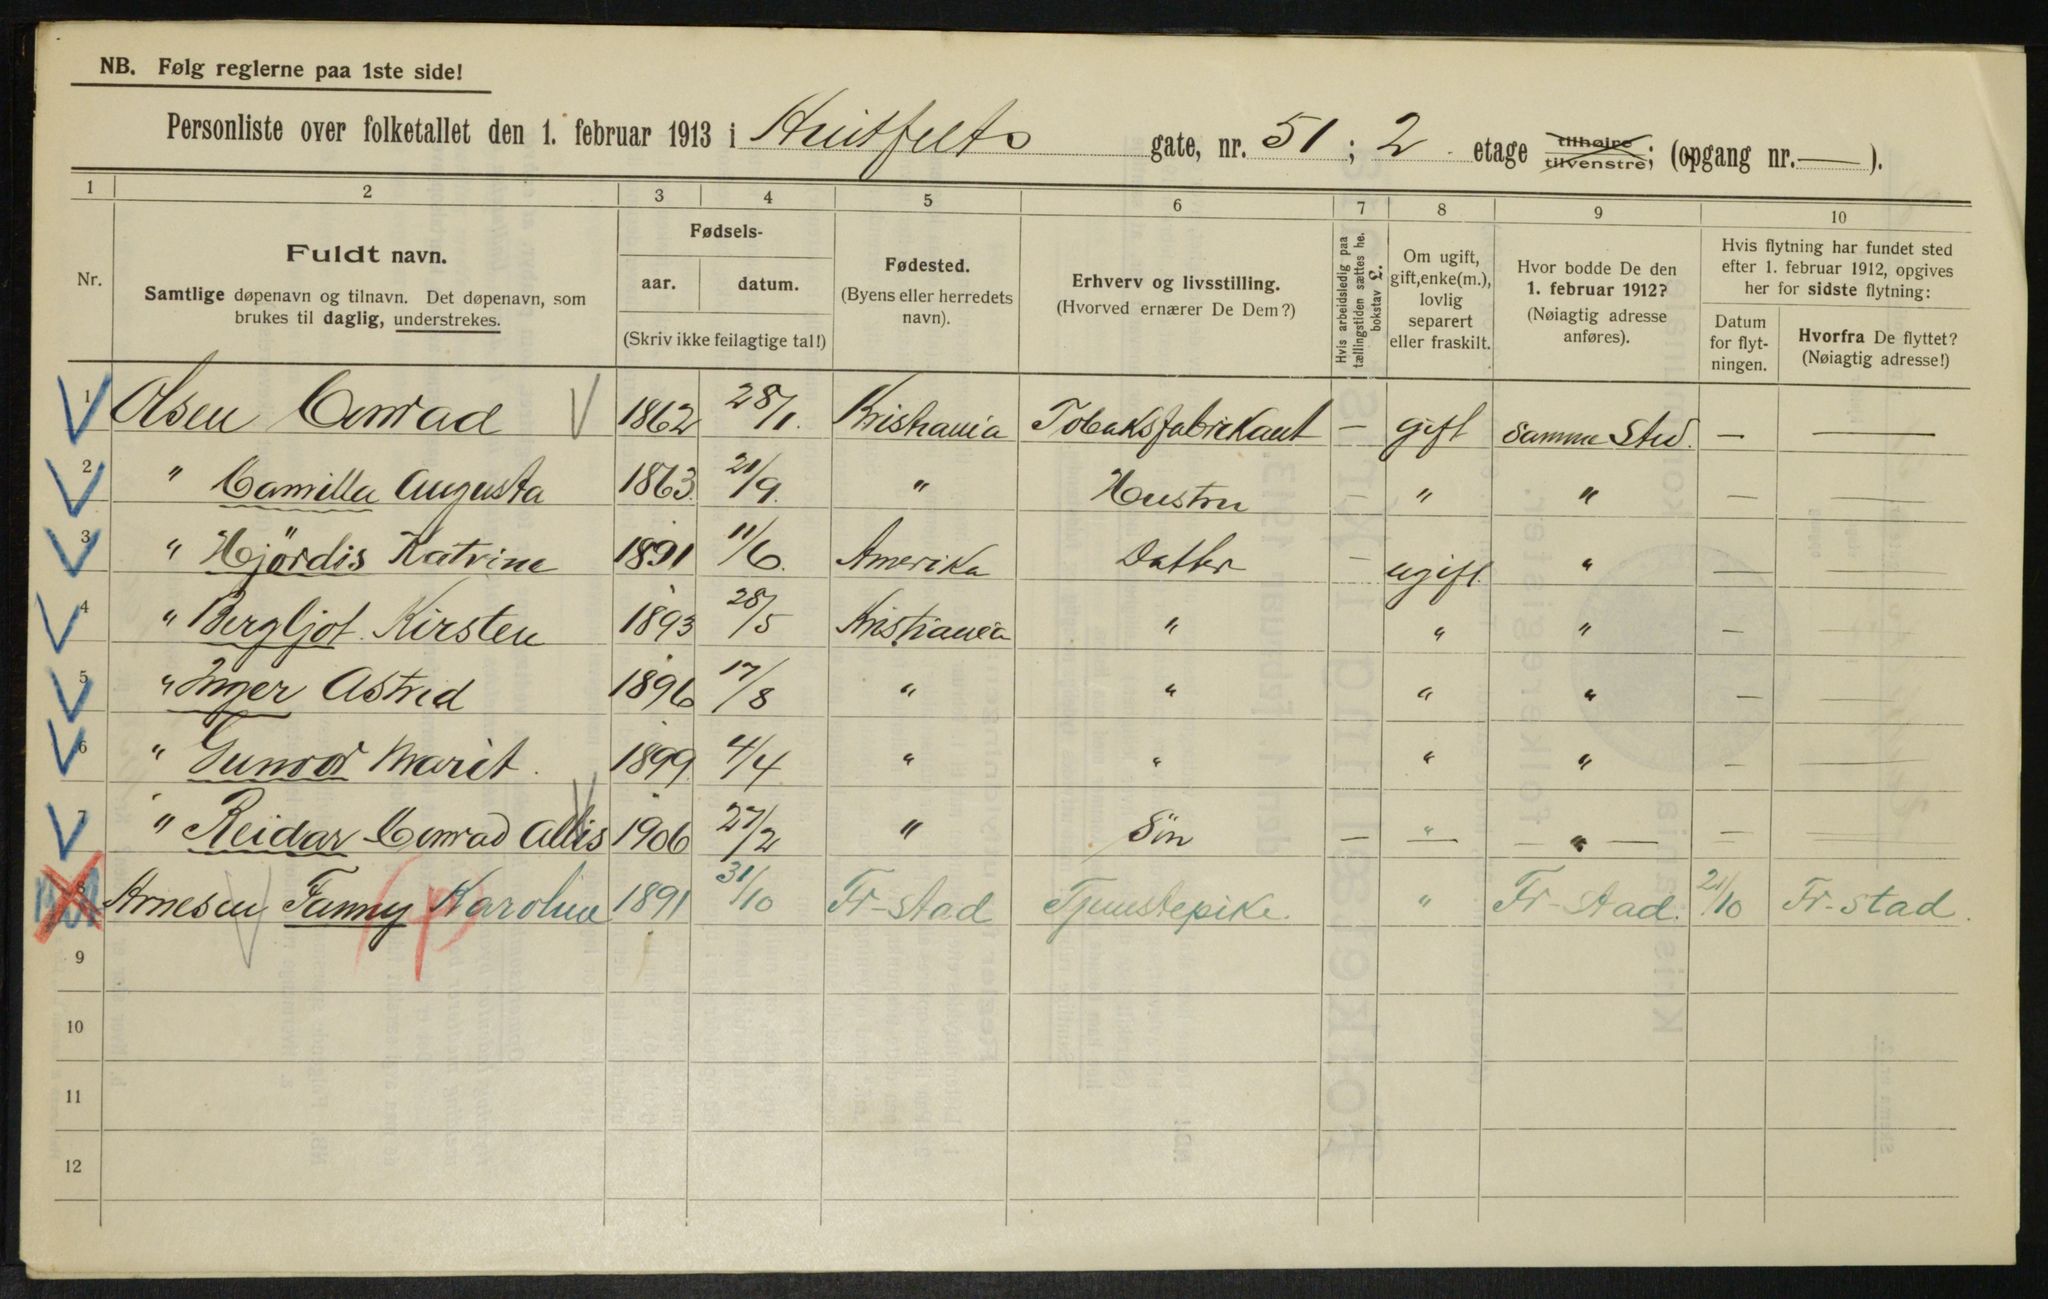 NB. Følg reglerne paa 1ste side!
Personliste over folketallet den 1. februar 1913 i Huitfelts gate, nr. 51; 2 etage tilhøire tilvenstre; (opgang nr. — ).
1 2 3 4 5 6 7 8 9 10
Nr.
Fuldt navn.
Samtlige døpenavn og tilnavn. Det døpenavn, som
brukes til daglig, understrekes.
Fødsels-
aar. datum.
(Skriv ikke feilagtige tal!)
Fødested.
(Byens eller herredets
navn).
Erhverv og livsstilling.
(Hvorved ernærer De Dem?)
Hvis arbeidsledig paa
tællingstiden sættes he.
bokstav L.
Om ugift,
gift, enke(m.),
lovlig
separert
eller fraskilt.
Hvor bodde De den
1. februar 1912?
(Nøiagtig adresse
anføres).
Hvis flytning har fundet sted
efter 1. februar 1912, opgives
her for sidste flytning:
Datum
for flyt-
ningen.
Hvorfra De flyttet?
(Nøiagtig adresse!)
1 Olsen Conrad 1862 28/1. Kristiania Tobaksfabrikant — gift samme sted. — —
2 " Camilla Augusta 1863. 21/9. " Hustru — " " — —
3 " Hjördis Katrine 1891 11/6. Amerika Datter — ugift " — —
4 " Bergljot Kirsten 1893 28/5 Kristiania " " " — —
5 " Inger Astrid 1896 17/8 " " " " — —
6 " Gunvor Marit. 1899 4/4 " " " " — —
7 " Reidar Conrad 1906 27/2 " Sön — " — " — — —
8 Arnesen Fanny Karoline 1891 31/10 Fr-stad Tjenestepike. " Fr-stad. 21/10 Fr-stad.
9
10
11
12